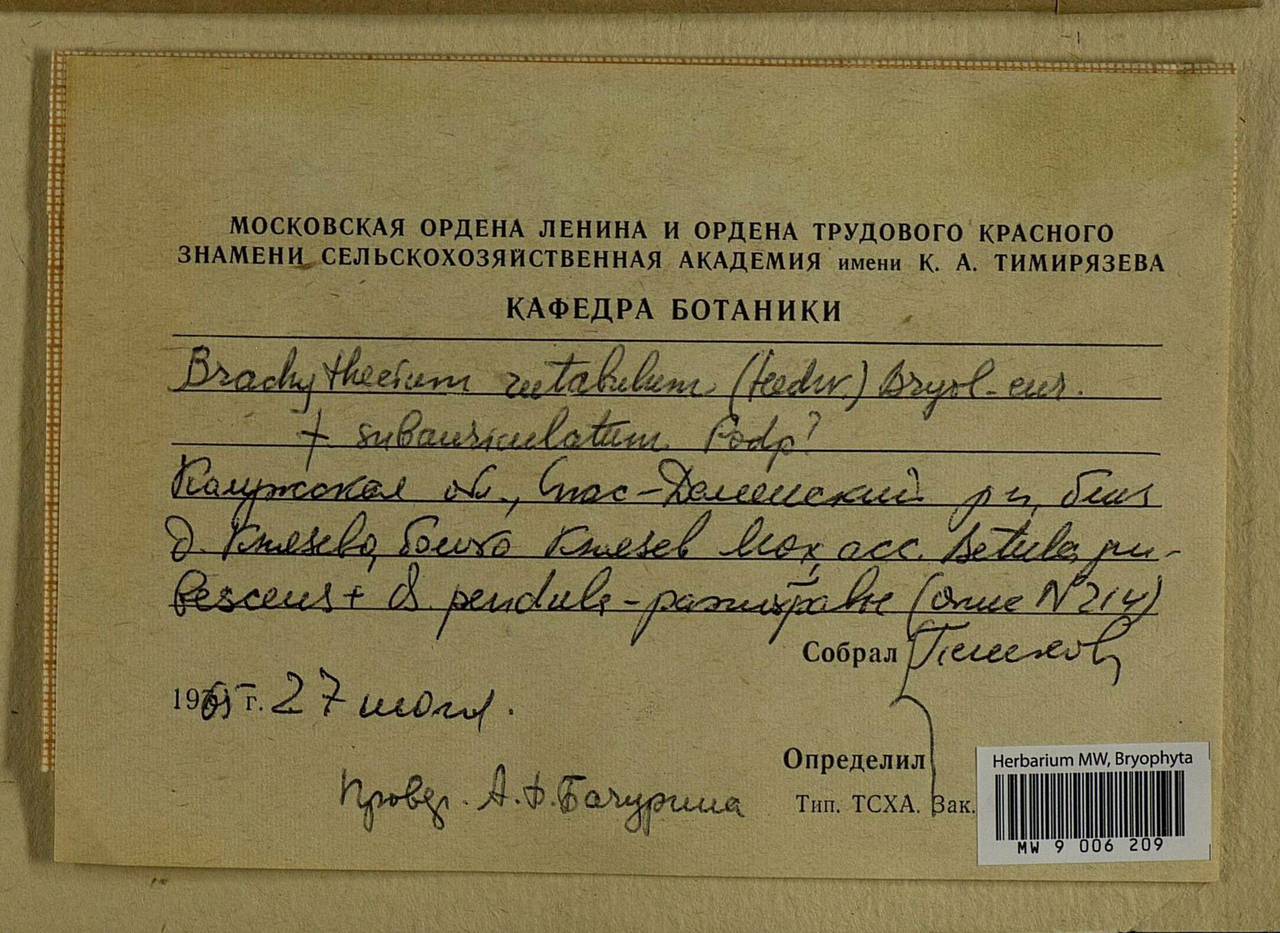 МОСКОВСКАЯ ОРДЕНА ЛЕНИНА И ОРДЕНА ТРУДОВОГО КРАСНОГО
ЗНАМЕНИ СЕЛЬСКОХОЗЯЙСТВЕННАЯ АКАДЕМИЯ имени К. А. ТИМИРЯЗЕВА
КАФЕДРА БОТАНИКИ
Brachythecium rutabulum (Hedw.) Bryol-eur.
f subauriculatum Podp?
Калужская обл., Спас-Деменский р-н, близ
д. Князево, болото Князев Мох, асс. Betula pu-
bescens + B. pendula - разнотравье (опис N 214)
Собрал
1965 г. 27 июля.
Определил
Провер. А.Ф. Бачурина
Тип. ТСХА. Зак.
Herbarium MW, Bryophyta
MW 9 006 209